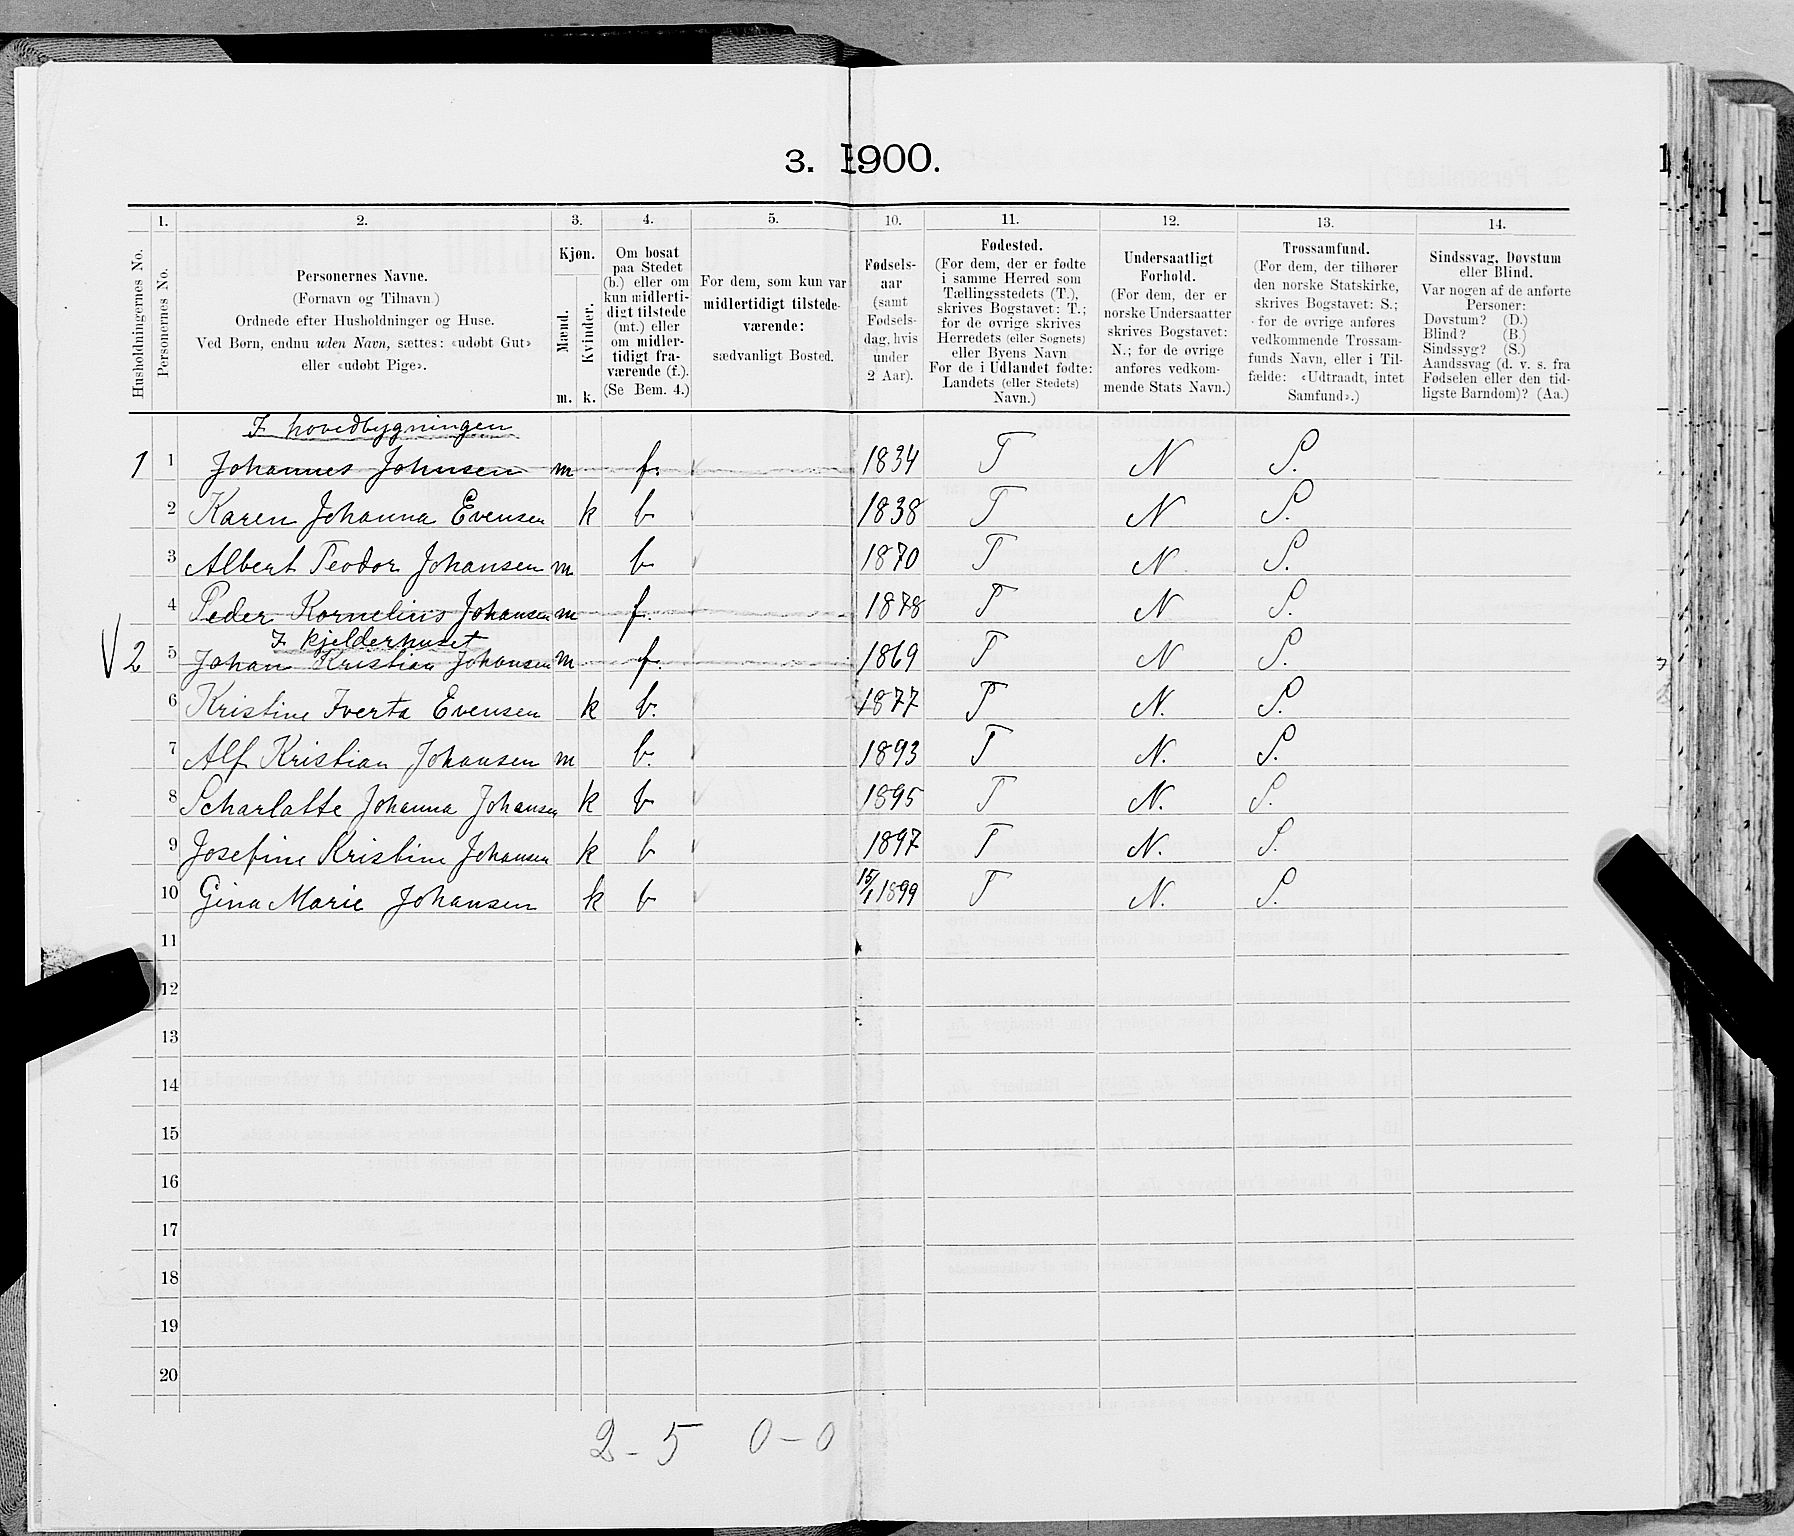 3. 1900.
1. 2. 3. 4. 5. 10. 11. 12. 13. 14.
Husholdningernes No.
Personernes No.
Personernes Navne.
(Fornavn og Tilnavn)
Ordnede efter Husholdninger og Huse.
Ved Børn, endnu uden Navn, sættes: «udøbt Gut»
eller «udøbt Pige».
Kjøn.
Mænd.
Kvinder.
m. k.
Om bosat
paa Stedet
(b.) eller om
kun midlerti-
digt tilstede
(mt.) eller
om midler-
tidigt fra-
værende (f.).
(Se Bem. 4.)
For dem, som kun var
midlertidigt tilstede-
værende:
sædvanligt Bosted.
Fødsels-
aar
(samt
Fødsels-
dag, hvis
under
2 Aar).
Fødested.
(For dem, der er fødte
i samme Herred som
Tællingsstedets (T.),
skrives Bogstavet: T.;
for de øvrige skrives
Herredets (eller Sognets)
eller Byens Navn
For de i Udlandet fødte:
Landets (eller Stedets)
Navn.)
Undersaatligt
Forhold.
(For dem, der er
norske Undersaatter
skrives Bogstavet:
N.; for de øvrige
anføres vedkom-
mende Stats Navn.)
Trossamfund.
(For dem, der tilhører
den norske Statskirke,
skrives Bogstavet: S.;
for de øvrige anføres
vedkommende Trossam-
funds Navn, eller i Til-
fælde: «Udtraadt, intet
Samfund».)
Sindssvag, Døvstum
eller Blind.
Var nogen af de anførte
Personer:
Døvstum? (D.)
Blind? (B.)
Sindssyg? (S.)
Aandssvag (d. v. s. fra
Fødselen eller den tid-
ligste Barndom)? (Aa.)
I hovedbygningen
1 1 Johannes Johnsen m f. 1834 T N S.
2 Karen Johanna Evensen k b 1838 T N S.
3 Albert Teodor Johansen m b. 1870 T N S.
4 Peder Kornelius Johansen m f. 1878 T N S.
I kjelderhuset
2 5 Johan Kristian Johansen m f. 1869 T N S.
6 Kristine Iverta Evensen k b. 1877 T N. S.
7 Alf Kristian Johansen m b. 1893 T N. S.
8 Scharlatte Johanna Johansen k b 1895 T N. S.
9 Josefine Kristine Johansen k b 1897 T N. S.
10 Gina Marie Johansen k b 15/1 1899 T N. S.
11
12
13
14
15
16
17
18
19
20
2-5 0-0